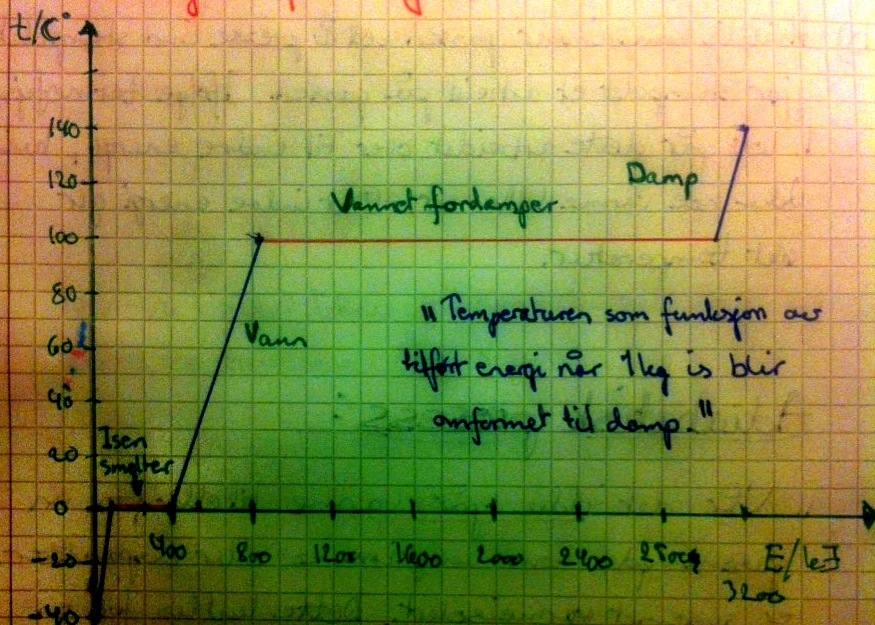 t/C°
140
120
100
80
60
40
20
0
-20
-40
Vannet fordamper
Damp
Vann
Isen
smelter
"Temperaturen som funksjon av
tilført energi når 1kg is blir
omformet til damp."
400
800
1200
1600
2000
2400
2800
3200
E/kJ